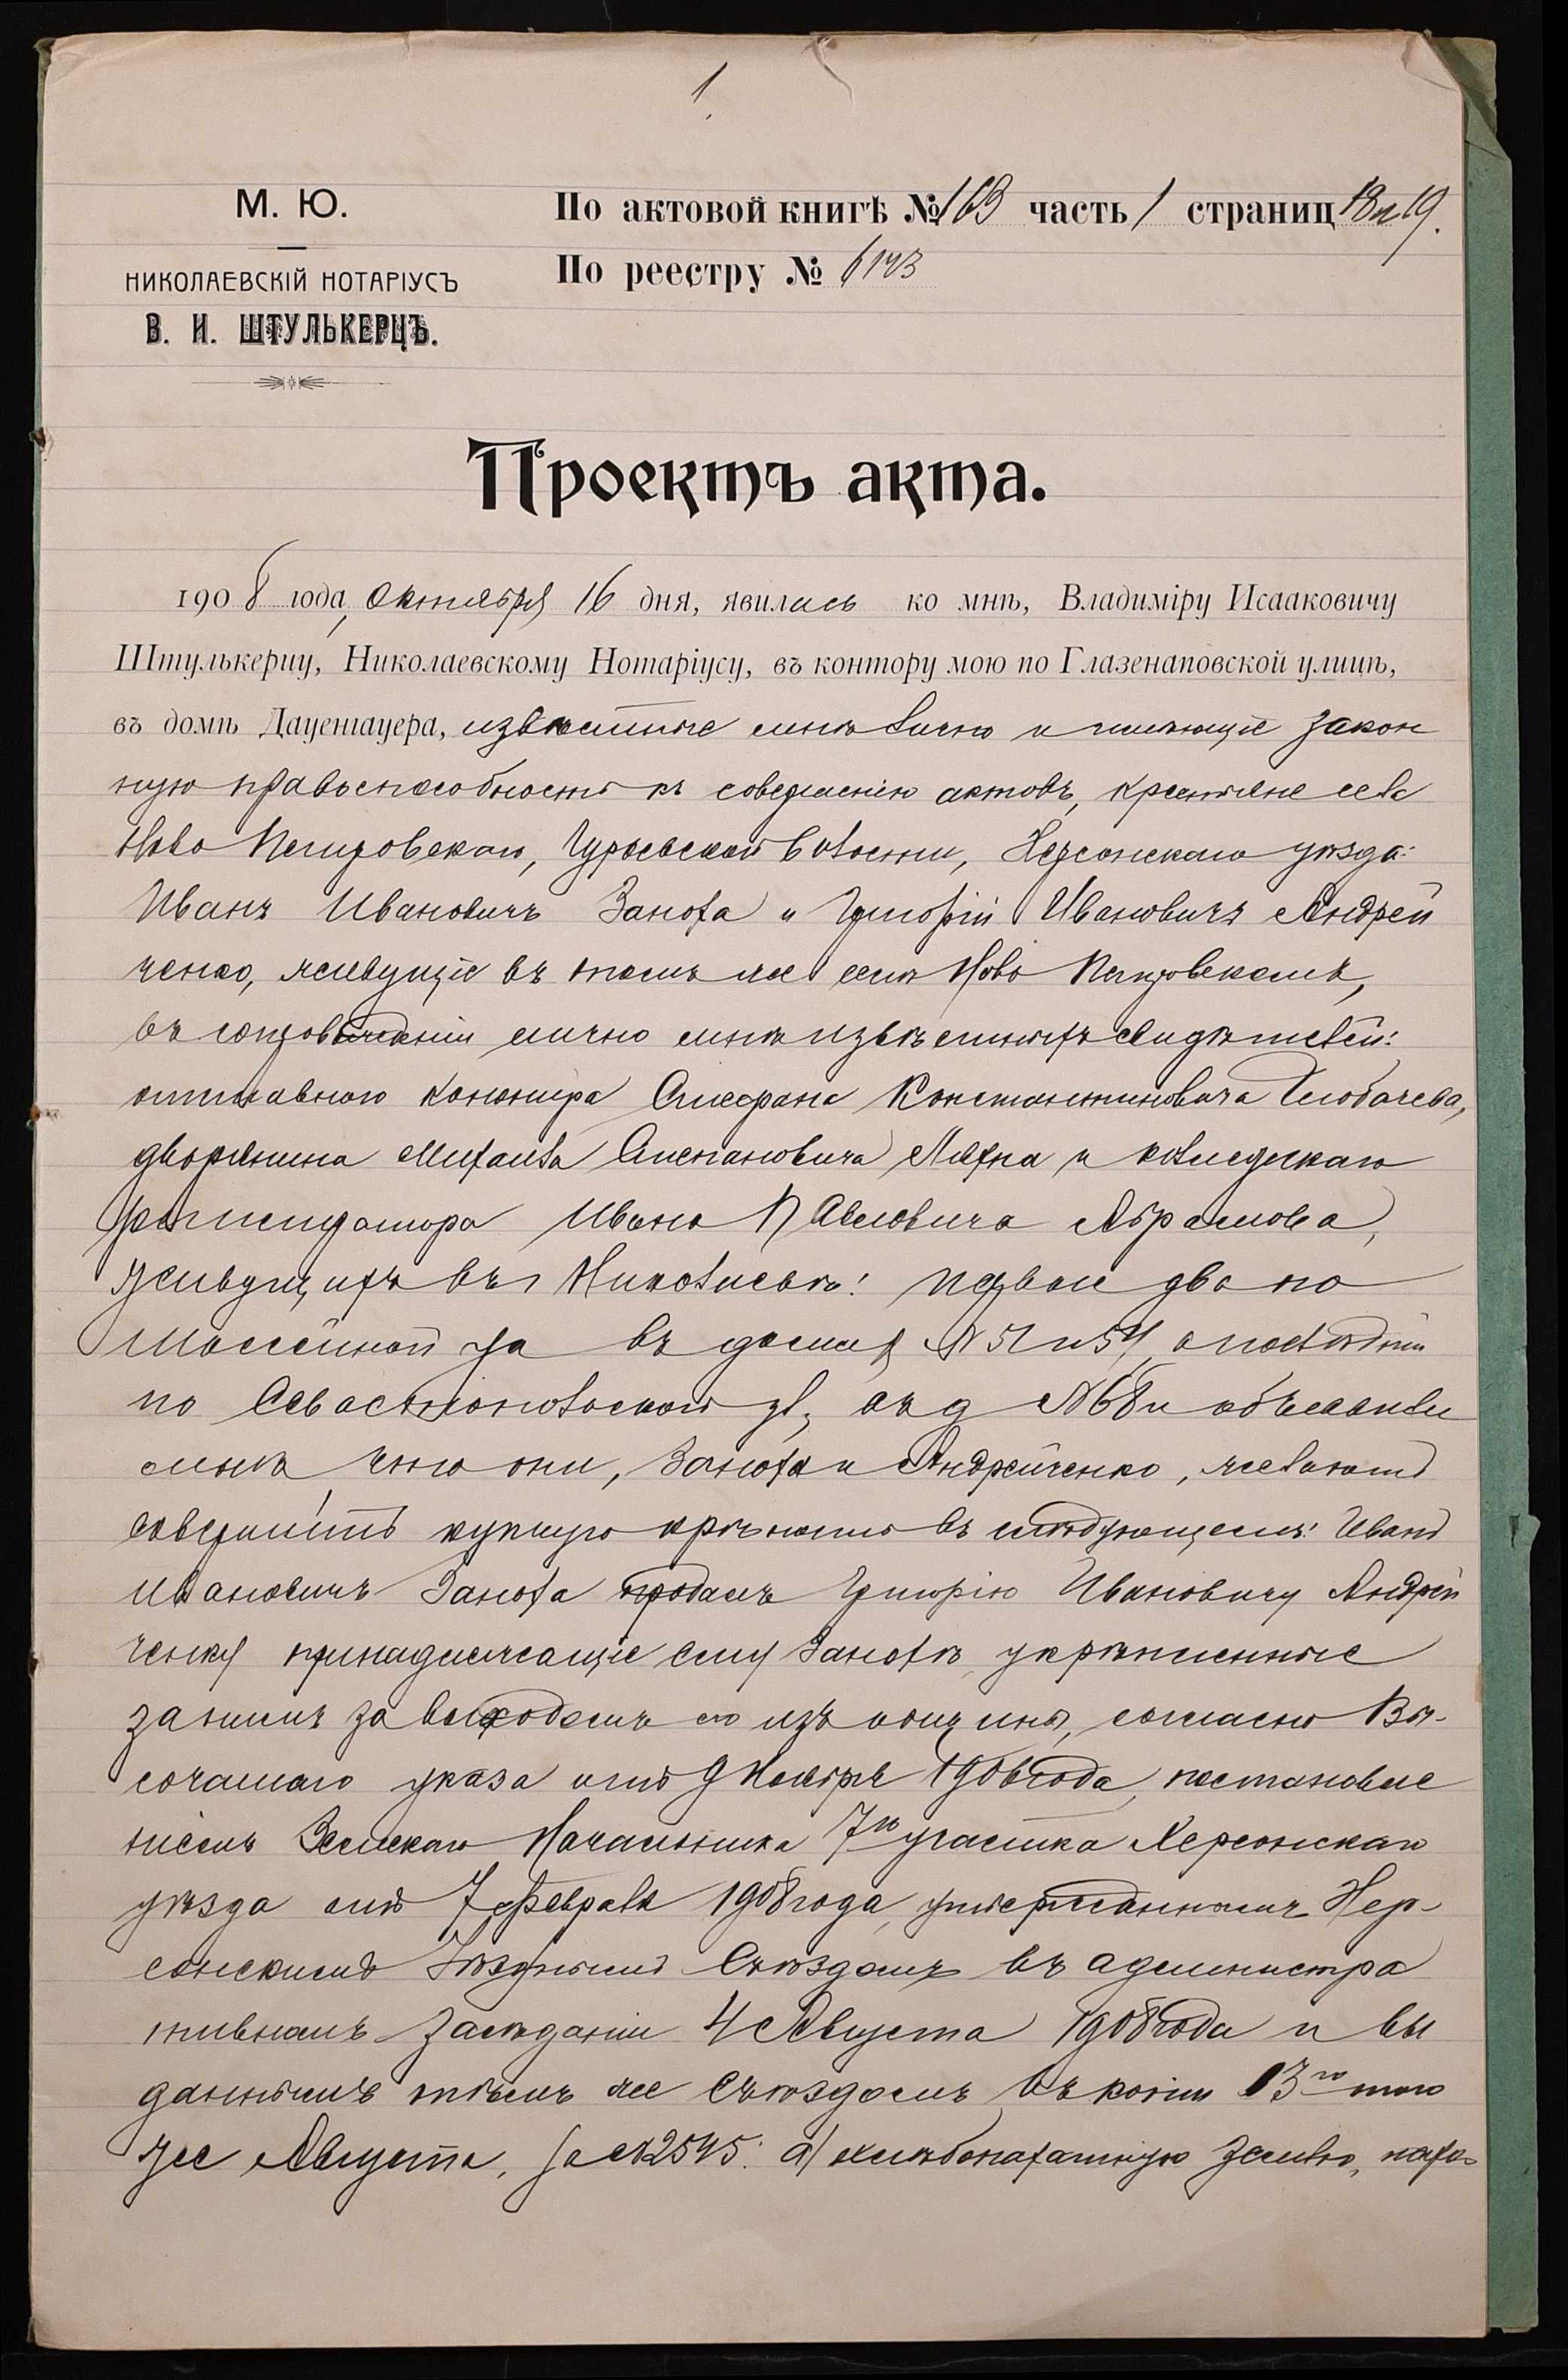 1
М. Ю.
По актовой книгѣ № 163 часть 1 страниц 18 и 19.
НИКОЛАЕВСКІЙ НОТАРІУСЪ
По реестру № 6143
В. И. ШТУЛЬКЕРЦЪ.
Проектъ акта.
1908 года, Октября 16 дня, явились ко мнѣ, Владиміру Исааковичу
Штулькерцу, Николаевскому Нотаріусу, въ контору мою по Глазенаповской улицѣ,
въ домѣ Дауенгауера, извѣстные мнѣ лично и имѣющіе закон
ную правоспособность къ совершенію актовъ, крестьяне села
Ново Петровскаго, Гурьевской волости, Херсонскаго уѣзда:
Иванъ Ивановичъ Заноха и Григорій Ивановичъ Андрей
ченко, живущіе въ томъ же селѣ Ново Петровскомъ,
въ сопровожденіи лично мнѣ извѣстныхъ свидѣтелей:
отставного Константиновича
дворянина Михаила Степановича и коллежскаго
регистратора Ивана Павловича Абрамова,
живущихъ въ Николаевѣ: первые два по
въ домахъ № 51 и 54, а послѣдній
по Севастопольской ул, въ д № 68 и объявили
мнѣ что они, Заноха и Андрейченко, желаютъ
совершить купчую крѣпость въ слѣдующемъ: Иванъ
Ивановичъ Заноха продалъ Григорію Ивановичу Андрей
ченку принадлежащіе ему Занохѣ, укрѣпленные
за нимъ за выходомъ его изъ общины, согласно Вы-
сочайшаго указа отъ 9 Ноября 1906 года, постановле
ніемъ Земскаго Начальника 7го участка Херсонскаго
уѣзда отъ 7 Февраля 1908 года, утвержденнымъ Хер-
сонскимъ Уѣзднымъ Съѣздомъ въ администра
тивномъ засѣданіи 4 Августа 1908 года и вы
даннымъ тѣмъ же Съѣздомъ въ копіи 13го того
же Августа, за № 2545: а) хлѣбопахатную землю, нахо-